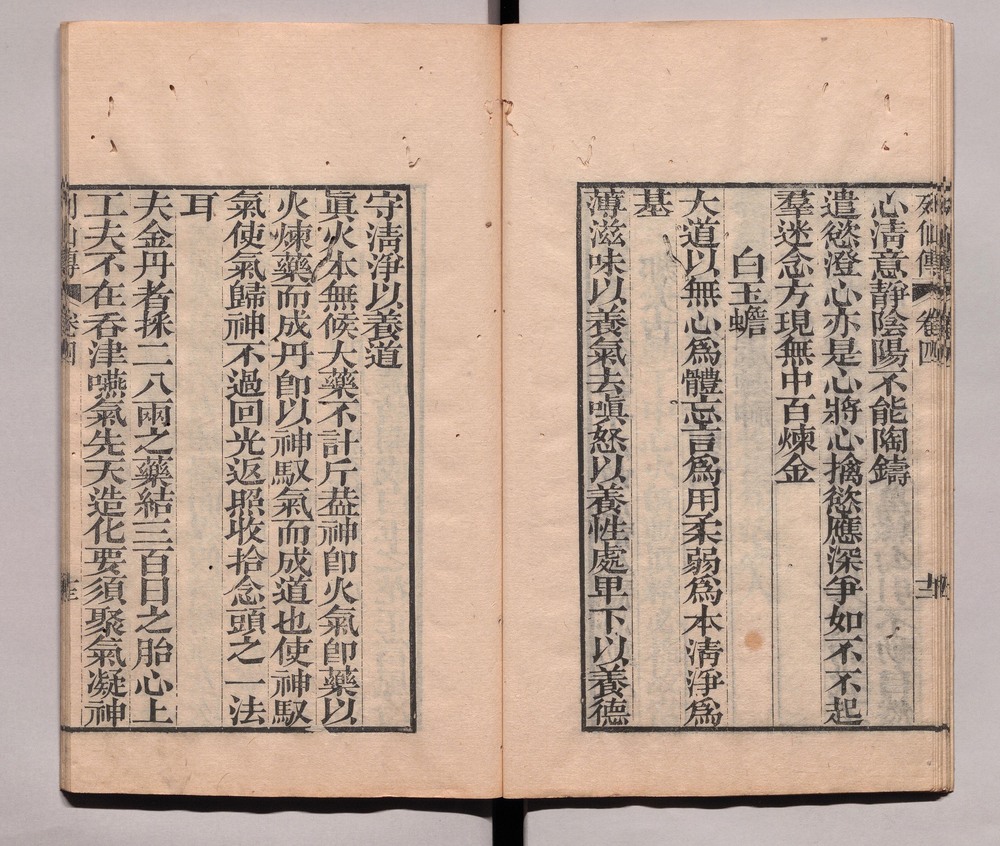 列仙傳 卷四
心清意靜陰陽不能陶鑄
遣慾澄心亦是心將心擒慾應深爭如不不起
羣迷念方現無中百煉金
白玉蟾
大道以無心爲體忘言爲用柔弱爲本清淨爲
基
薄滋味以養氣去嗔怒以養性處卑下以養德
守清淨以養道
眞火本無候大藥不計斤葢神即火氣即藥以
火煉藥而成丹即以神馭氣而成道也使神馭
氣使氣歸神不過回光返照收拾念頭之一法
耳
夫金丹者採二八兩之藥結三百日之胎心上
工夫不在吞津嚥氣先天造化要須聚氣凝神
列仙傳 卷四